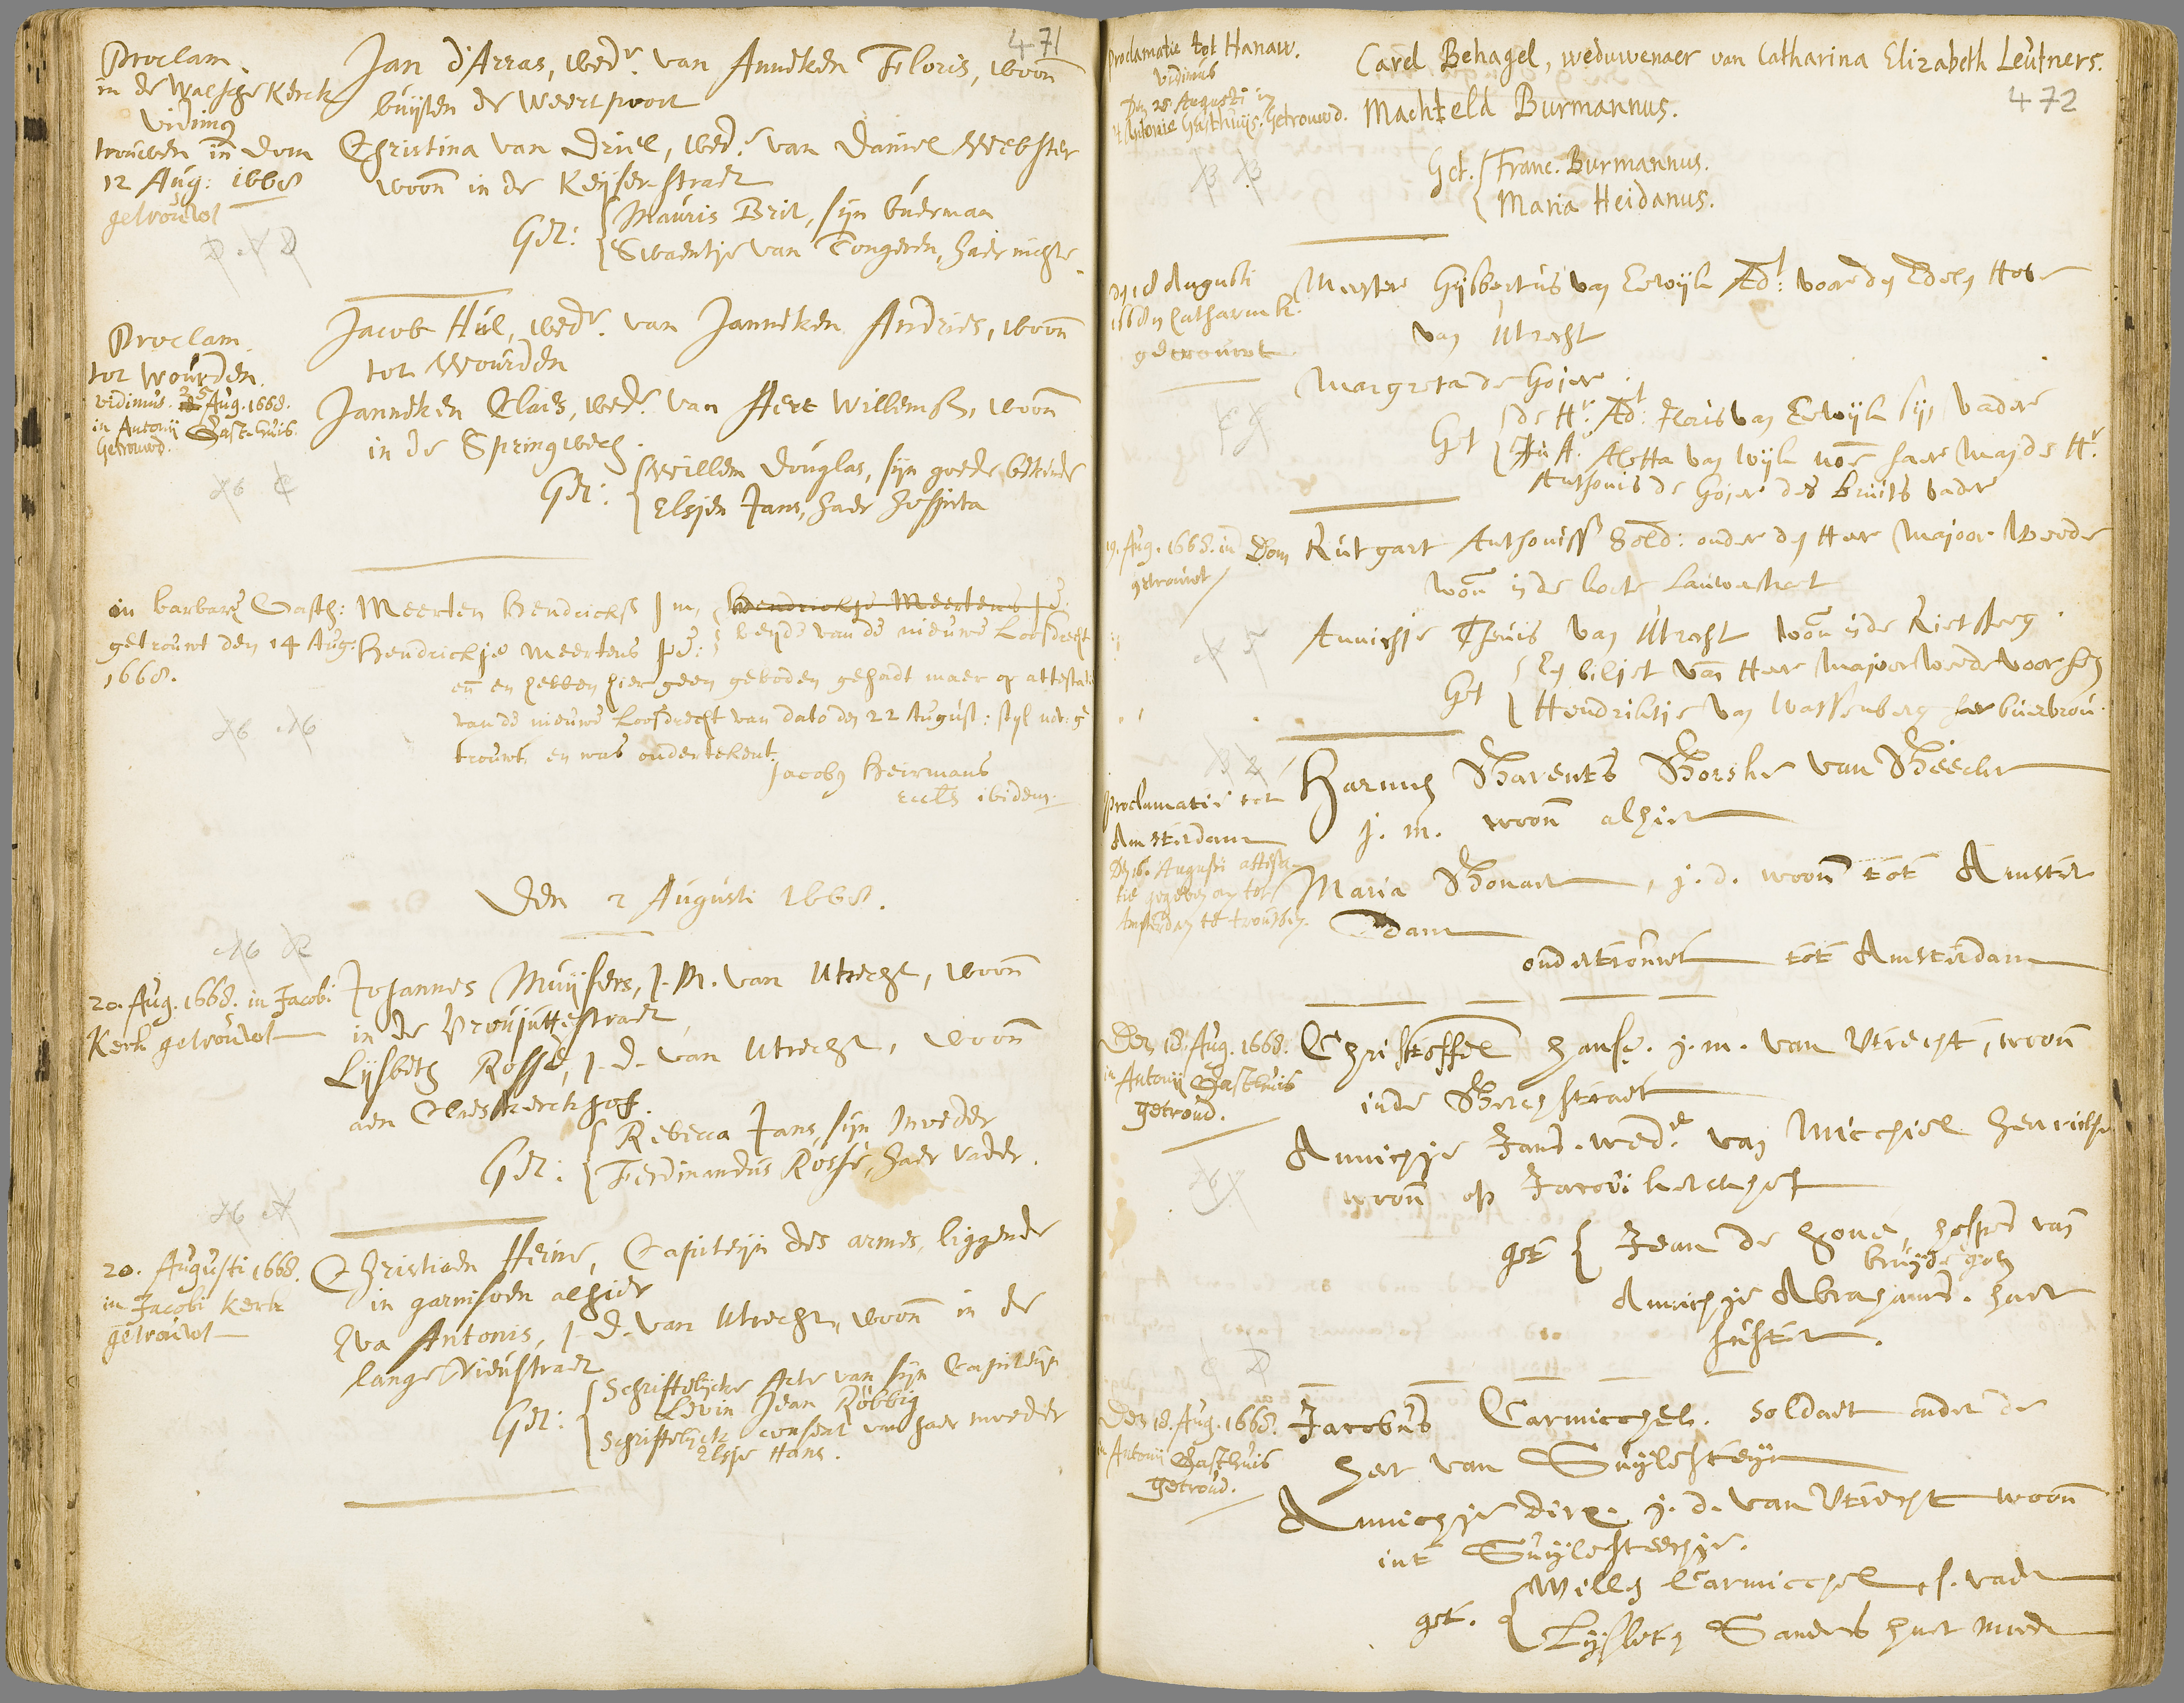 471
Proclam.
in de Walsche Kerck
vidimus
trouwen in dom
12 Aug: 1668
getrouwt
Jan d'Arras, wedr. van Anneken Floris, woon̄
buijten de Weertpoort
Christina van Driel, wede. van Daniel Webster
woon̄ in de Keijserstraet
Get: Mauris Brit, sijn buerman
Swaentje van Tongeren, haer nichte.
Proclam.
tot Wourden.
vidimus. 25 Aug. 1668.
in Antonij Gasthuis.
Getrouwd.
Jacob Hul, wedr. van Janneken Andries, woon̄
tot Wourden
Janneken Claes, wede. van Aert Willemsz, woon̄
in de Springwech.
Get: Willem Douglas, sijn goede bekende
Elsjen Jans, haer hospita
in barbare Gasth:
getrouwt den 14 Aug:
1668.
Meerten Hendricksz j m, Hendrickje Meertens j d.
Hendrickje Meertens j d: beijde van de nieuwe Loosdrecht
en̄ en hebben hier geen geboden gehadt maer op attestatie
van de nieuwe Loosdrecht van dato den 22 August: styl nov: ge
trouwt, en was ondertekent.
Jacobus Heirmans
Eccles ibidem.
Den 2 Augusti 1668.
20. Aug. 1668. in Jacobi
Kerk getrouwt
Johannes Muijsers, j. m. van Utrecht, woon̄
in de Vroujuttestraet
Lijsbeth Rossé, j. d. van Utrecht, woon̄
aen Claes kerckhof.
Get: Rebecca Jans, sijn moeder
Ferdinandus Rossé, haer vader.
20. Augusti 1668.
in Jacobi Kerk
getrouwt
Christiaen Heine, Capiteijn des armes, liggende
in garnisoen alhier
Eva Antonis, j. d. van Utrecht, woon̄ in de
lange Nieustraet
Get: Schriftelijcke Acte van sijn Capiteijn
Levin Jean Robbig
Schriftelijck consent van haer moeder
Elsje Hans.
Proclamatie tot Hanaw.
vidimus
Den 25 Augusti in
St Antonie Gasthuijs. Getrouwd.
Carel Behagel, weduwenaer van Catharina Elizabeth Leutners.
472
Machteld Burmannus.
Get. Franc. Burmannus.
Maria Heidanus.
den 18 Augusti
1668 in Catharin K.
getrouwt
Meester Gijsbertus van Ewijk Adt. voor den Edelen Hove
van Utrecht
Margreta de Goijer.
Get de Hr. Adt. Floris van Ewijk sijn vader
Aletta van Wijk moe haer Maij de Hr.
Anthonis de Goijer des bruits vader
19. Aug. 1668. in Dom
getrouwt
Rutgart Anthonisse Sold: onder den Heer Majoor Weede
won̄ in de corte Lauwerstraet
Annichje Theunis van Utrecht woon̄ in de Rietsteeg.
Get Een biljet van Heer Majoor Weede voorsz
Hendrikje van Wassenberg haer buervrou.
Proclamatie tot
Amsterdam
Den 16 Augusti attesta-
tie gegeven om tot
Amsterdam te trouwen.
Harmen Barents Borske van Beecke
j. m. woon̄ alhier
Maria Bonaer, j. d. woon̄ tot Amster
dam
ondertrouwt tot Amsterdam
Den 18. Aug. 1668.
in Antonij Gasthuis
getroud.
Christoffel Hanse. j. m. van Utrecht, woon̄
inde Berchstraet
Annichje Jans. wede. van Micchiel Henrickse
woon̄ op Jacobi kerckhof
get Jean de Hone, hospes van
bruijdegom
Annichje Abrahams. haer
suster.
Den 18. Aug. 1668.
in Antonij Gasthuis
getroud.
Jacobus Carmicchel. soldaet onder de
heer van Suijlesteijn
Annichje Dirx. j. d. van Utrecht woon̄
int Suijlesteechje.
get. Willem Carmicchel s. vader
Lijsbeth Sanders haer moeder